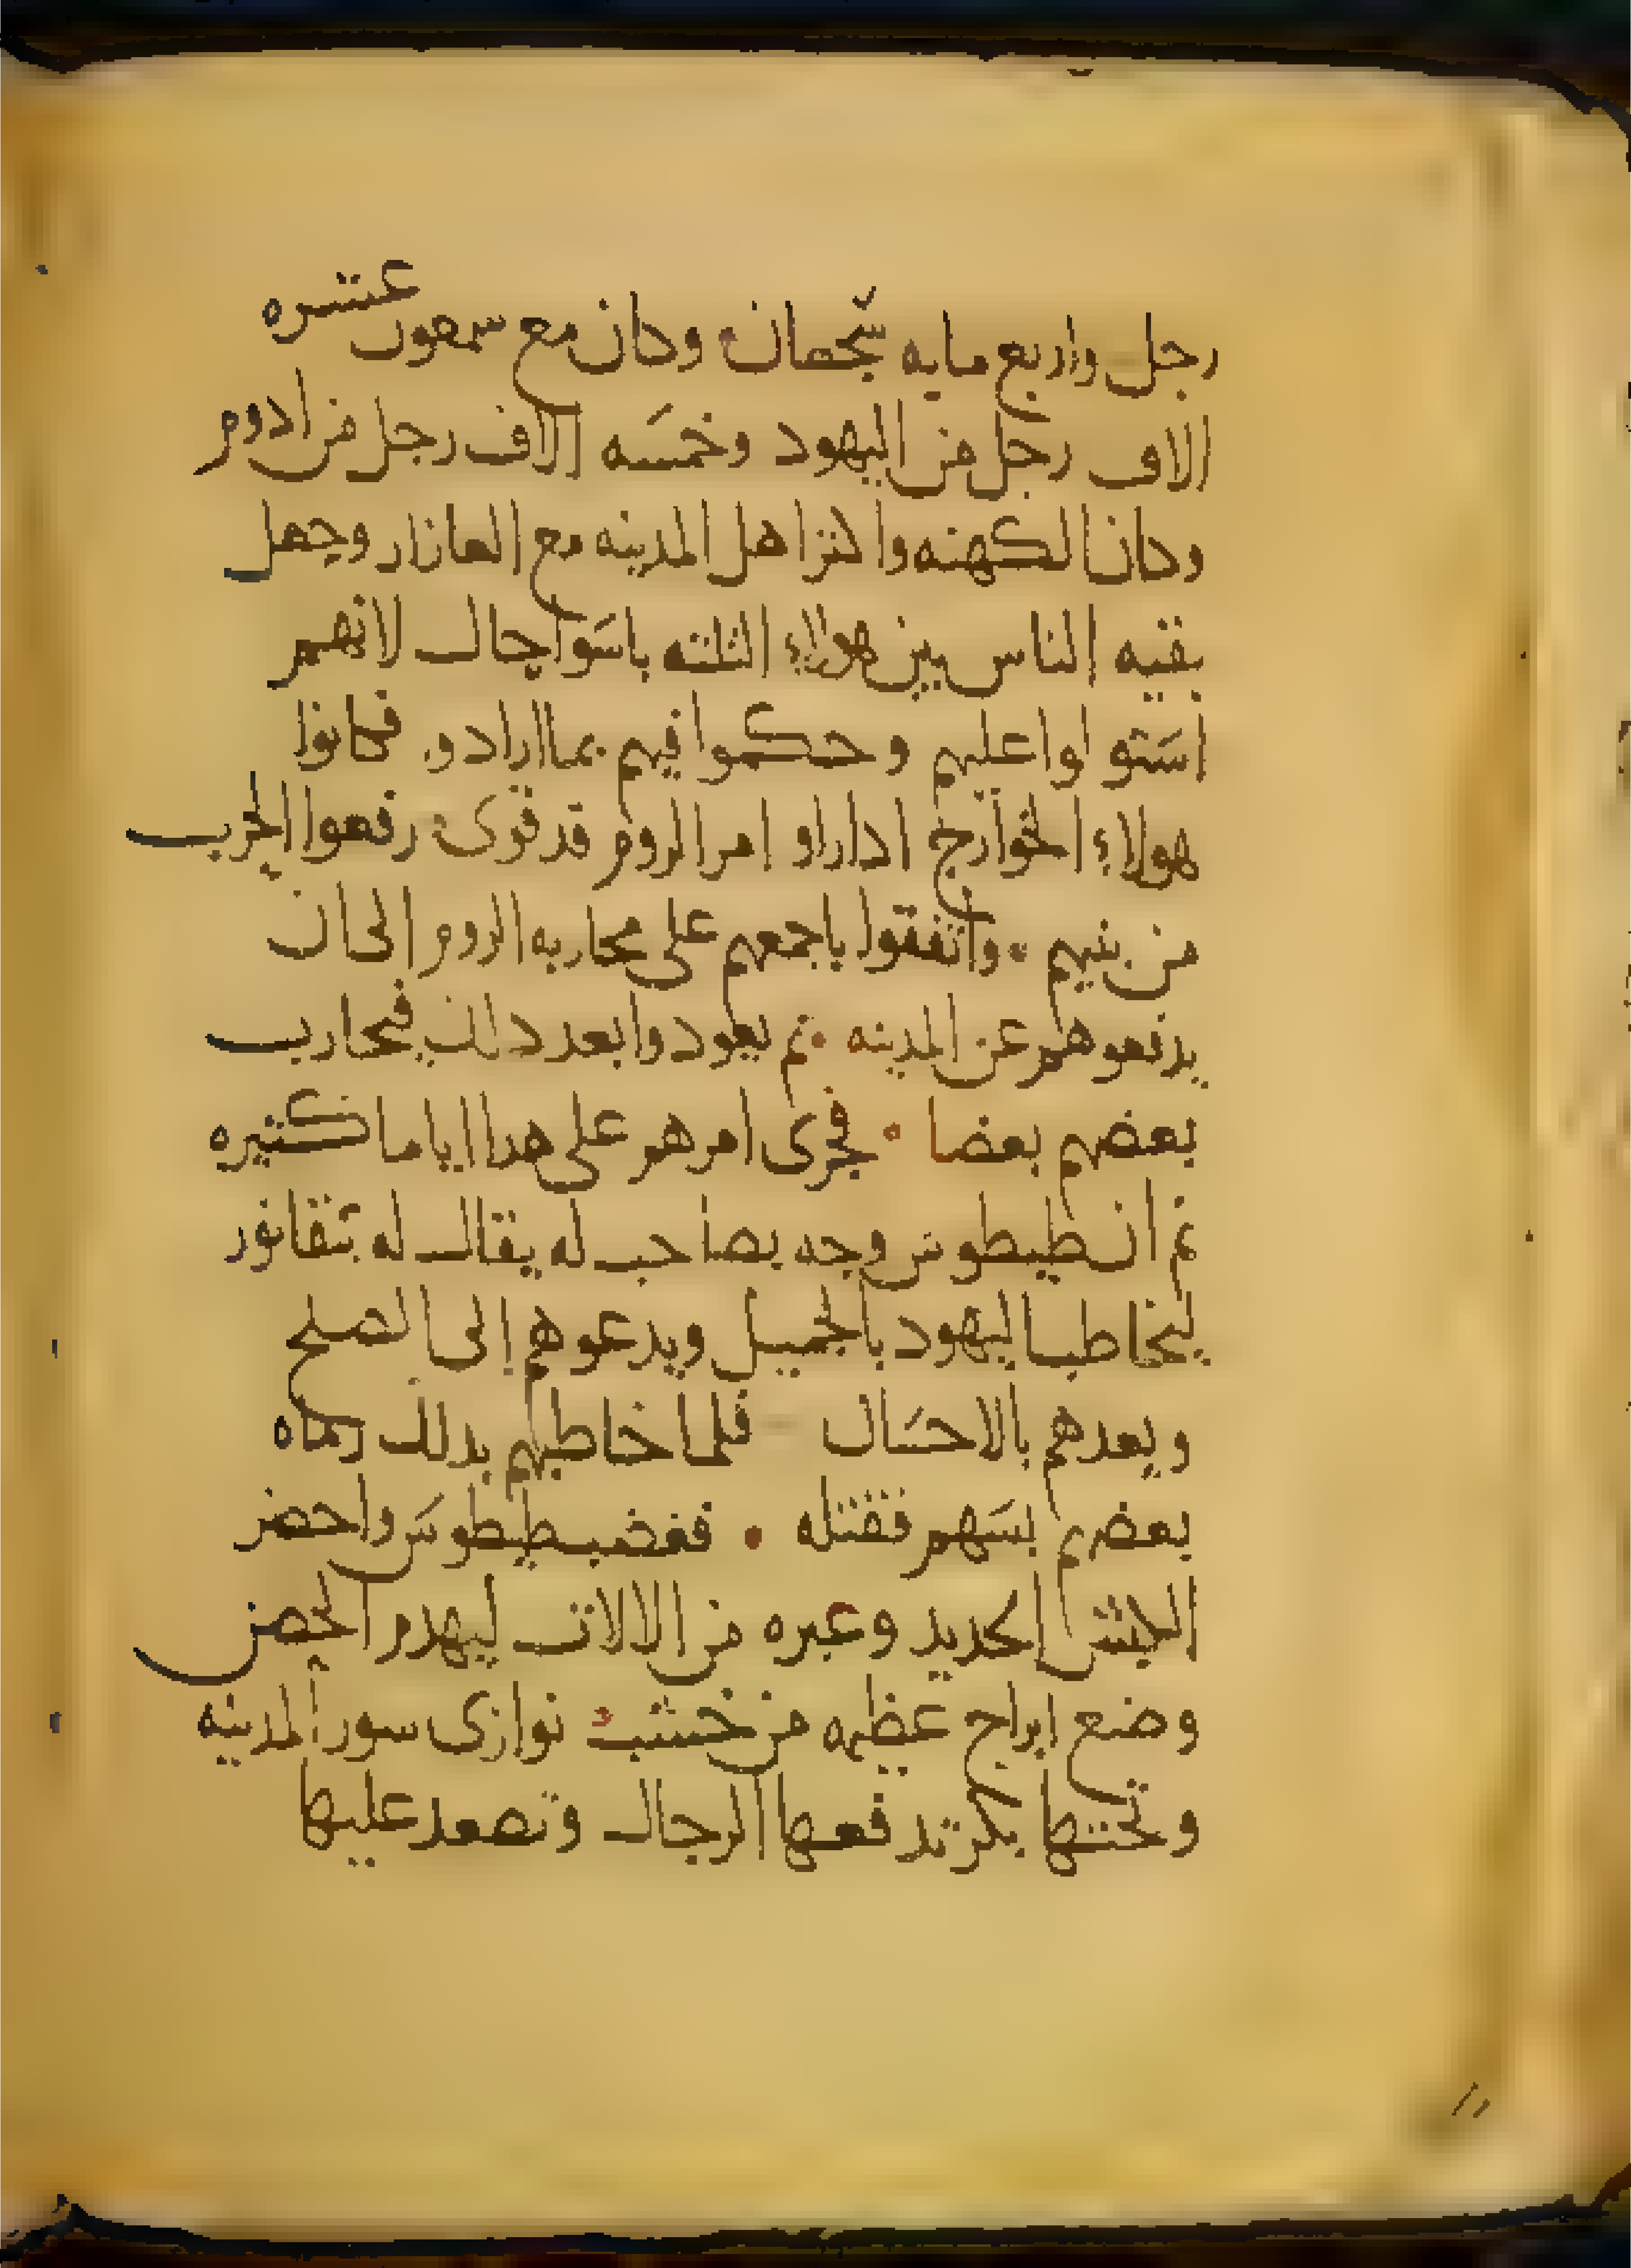 رجل واربع مايه شجعان وكان مع سمعون عشره
الاف رجل من اليهود وخمسه الاف رجل من ادوم
وكان الكهنه واكثر اهل المدينه مع العازار وجعل
بقيه الناس بين هولاء الثلثه باسوا حال لانهم
استولوا عليهم وحكموا فيهم بما ارادو. فكانوا
هولاء الخوارج ادا راو امر الروم قد قوى رفعوا الحرب
من بينهم • واتفقوا باجمعهم على محاربه الروم الى ان
يدفعوهم عن المدينه • ثم يعودوا بعد دلك فيحارب
بعضهم بعضا • فجرى امرهم على هدا اياما كثيره
ثم ان طيطوس وجه بصاحب له يقال له نيقانور
ليخاطب اليهود بالجميل ويدعوهم الى الصلح
ويعدهم بالاحسان فلما خاطبهم بدلك رماه
بعضهم بسهم فقتله • فغضب طيطوس واحضر
الكبش الحديد وغيره من الالات ليهدم الحصن
وضع ابراج عظيمه من خشب توازى سور المدينه
وتحتها بكر تدفعها الرجال وتصعد عليها